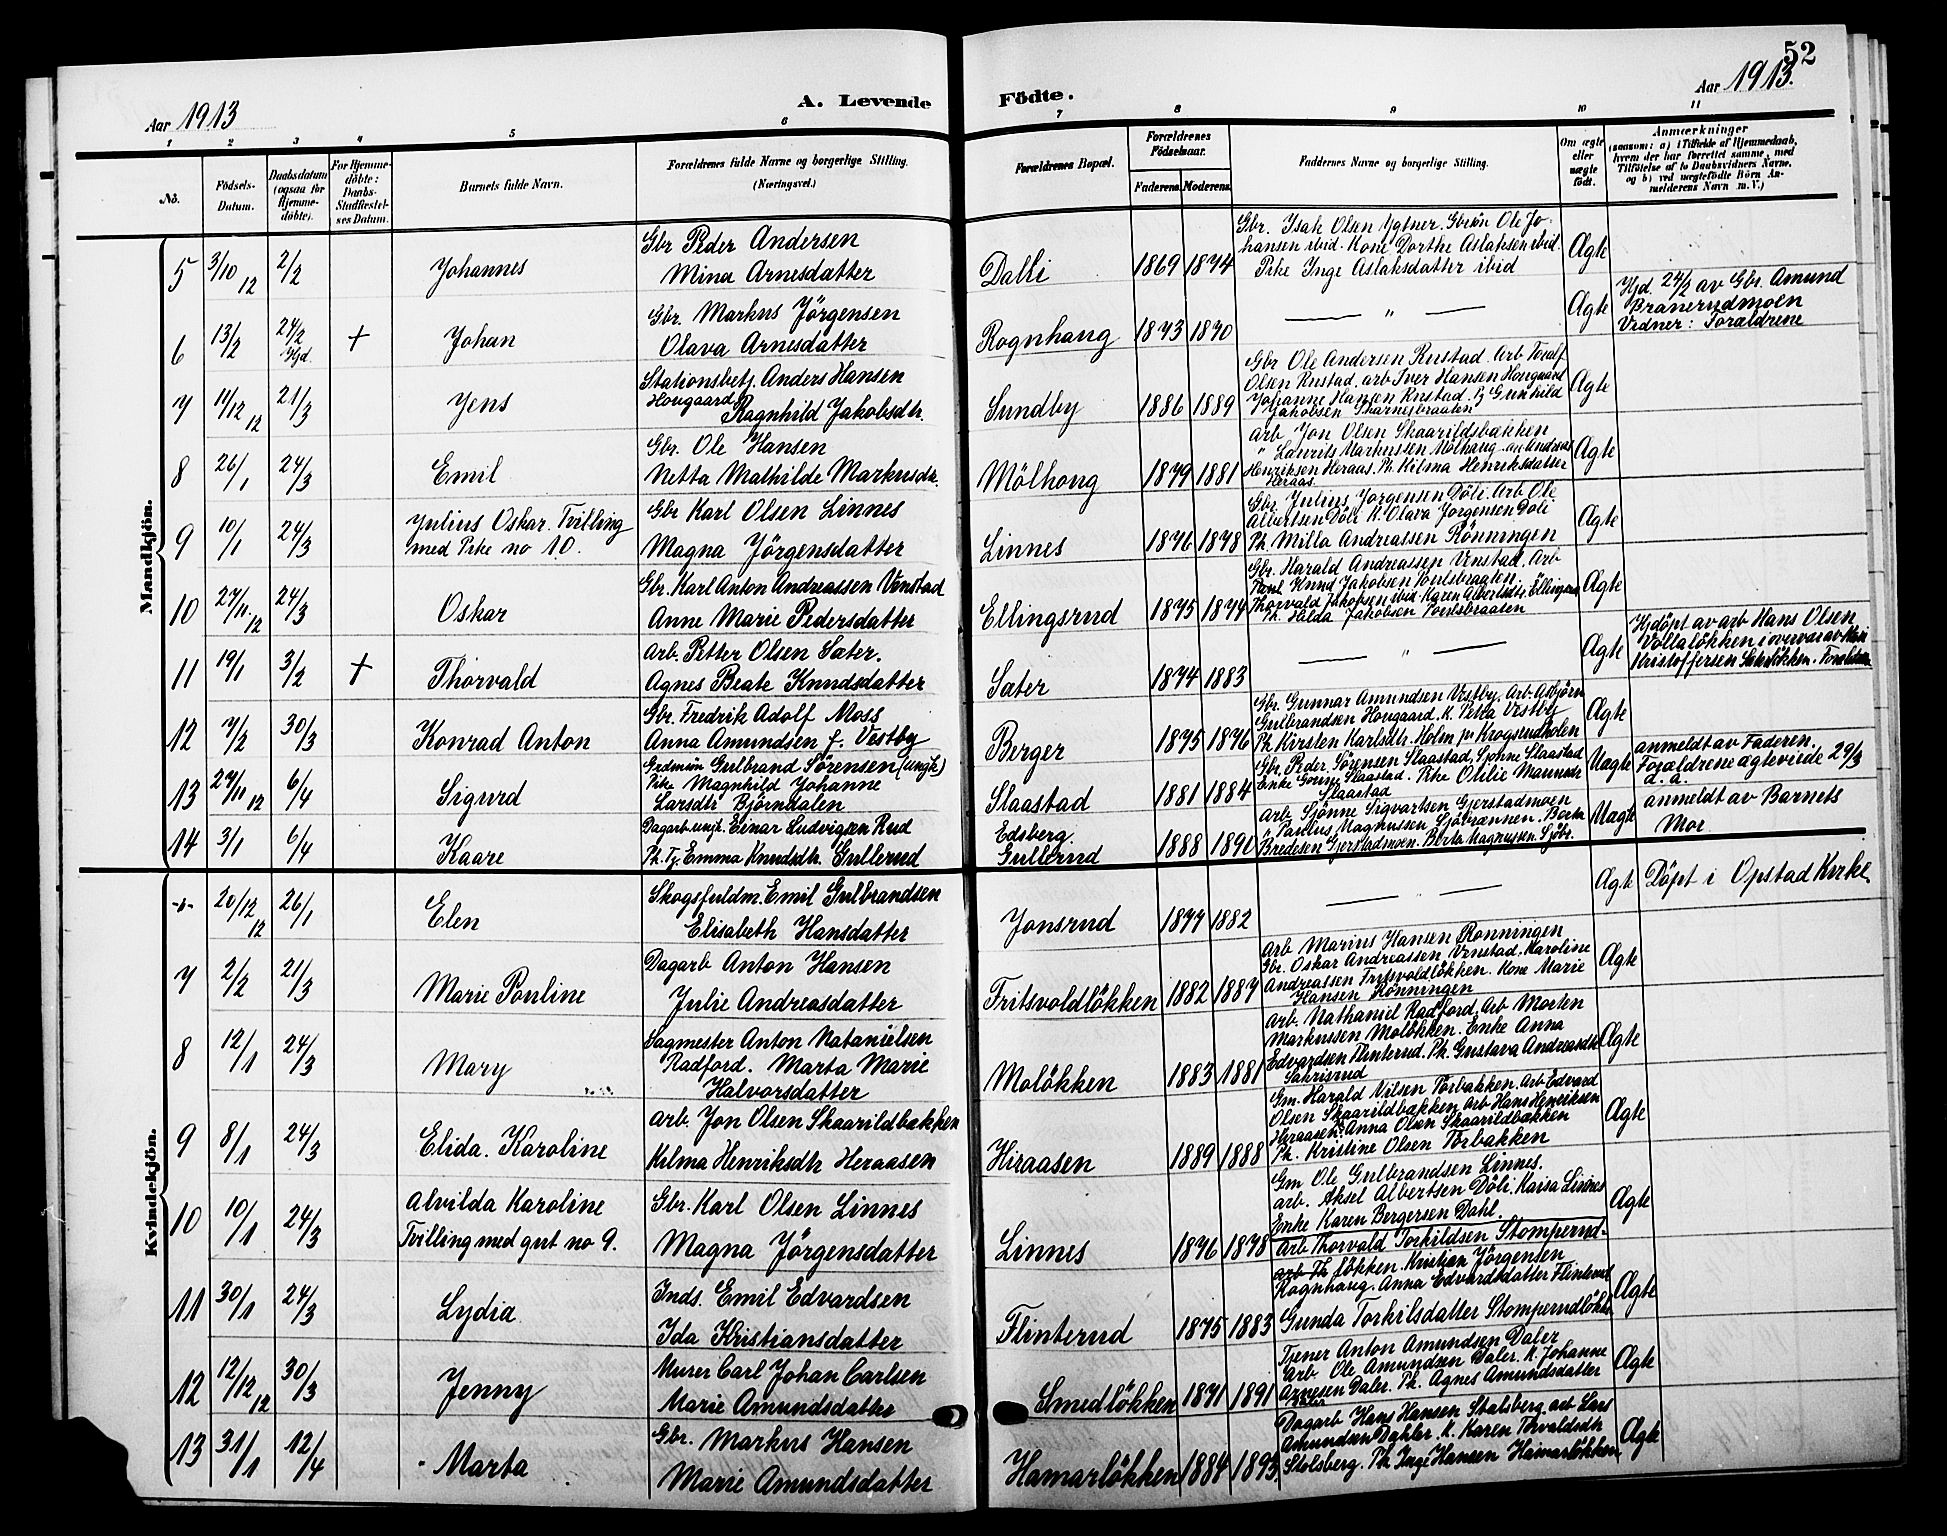 52
Aar 1913
A. Levende Födte.
Aar 1913.
1 2 3 4 5 6 7 8 9 10 11
No.
Födsels-Datum.
Daabsdatum (ogsaa for Hjemmedöbte).
For Hjemmedöbte: Daabs-Stadfæstelses Datum.
Barnets fulde Navn.
Forældrenes fulde Navne og borgerlige Stilling.
(Næringsvei.)
Forældrenes Bopæl.
Forældrenes Födselsaar.
Faderens. Moderens.
Faddernes Navne og borgerlige Stilling.
Om ægte eller uægte födt.
Anmærkninger
(saasom: a) i Tilfælde af Hjemmedaab, hvem der har forrettet samme, med Tilföielse af to Daabsvidners Navne, og b) ved uægtefödte Börn Anmelderens Navn m. V.)
Mandkjön.
5 3/10 12 2/2 Johannes
Gbr Peder Andersen
Mina Arnesdatter
Dalli 1869 1874
Gbr. Isak Olsen Ygtner. Gbrsön Ole Jo-
hansen ibid. Kone Dorthe Aslaksen ibid.
Pike Inge Aslaksdatter ibid
Ægte
6 13/2 24/2 Hjd. + Johan
Gbr. Markus Jörgensen
Olava Arnesdatter
Rognhaug 1873 1870
— " —
Ægte
Hjd. 24/2 av Gbr. Amund
Branerudmoen
Vidner: Forældrene
7 11/12 12 21/3 Jens
Stationsbetj. Anders Hansen
Hougaard Ragnhild Jakobsdtr.
Sundby 1886 1889
Gbr Ole Andersen Rustad. Arb Toralf
Olsen Rustad, arb Iver Hansen Hougaard
Johanne Hansen Rustad. Pg Gunhild
Jakobsen Skarnesbraaten
Ægte
8 26/1 24/3 Emil
Gbr. Ole Hansen
Netta Mathilde Markusdtr.
Mölhoug 1879 1881
Arb Jon Olsen Skaarildsbækken
" Laurits Markussen Mölhaug. arb Andreas
Henriksen Heraas. Ph. Hilma Henriksdatter
Heraas
Ægte
9 10/1 24/3 Julius Oskar. Tvilling
med Pike no 10.
Gbr Karl Olsen Linnes
Magna Jörgensdatter
Linnes 1876 1878
Gbr. Julius Jorgensen Döli. Arb Ole
Albertsen Döli K. Olava Jörgensen Döli
Ph. Milla Andreassen Rönningen
Ægte
10 27/11 12 24/3 Oskar
Gbr. Karl Anton Andreassen Unstad
Anne Marie Pedersdatter
Ellingsrud 1875 1874
Gbr. Harald Andreassen Unstad. Arb
Knud Jakobsen
Thorvald Jakobsen ibid. Karen Albertsdtr Ellingsrud
Ph. Halda Jakobsen
Ægte
11 19/1 3/2 + Thorvald
Arb. Petter Olsen Sæter.
Agnes Beate Knudsdatter
Sæter 1874 1883
— " —
Ægte
Hjdöpt av arb Hans Olsen
Vollalökken i overvær av
Kristoffersen Sæterlökken. Forældrene
12 7/2 30/3 Konrad Anton
Gbr. Fredrik Adolf Moss
Anna Amundsen f. Vestby
Berger 1875 1876
Gbr. Gunnar Amundsen Vestby, Arb. Asbjörn
Gulbrandsen Hougaard. K. Petra Vestby
Ph. Kirsten Karlsdtr. Holm pr Krogsrudholen
Ægte
13 27/11 12 6/4 Sigurd
Grdmsön Gulbrand Sörensen (ungk)
Pike Magnhild Johanne
Larsdtr Björndalen
Slaastad 1881 1884
Gbr. Peder Sörensen Slaastad, Sjönne Slaastad
Enke Slaastad. Pike Otilie
Slaastad
Uægte
anmeldt av Faderen.
Forældrene ægteviede 29/3
d. a.
14 3/1 6/4 Kaare
Dagarb. ungk. Einar Ludvigsen Rud
Ph. Tj. Emma Knudsdtr. Gullerud
Edsberg.
Gullerud 1888 1890
Arb Sjönne Sigvartsen Gjerstadmoen
" Paulus Magnussen Sjöbrænnen. Berta
Bredesen Gjerstadmoen. Berta Magnussen. Sjöbr.
Uægte
anmeldt av Barnets
Mor
Kvindekjön.
20/12 12 26/1 Elen
Skogsfuldm. Emil Gulbrandsen
Elisabeth Hansdatter
Jonsrud 1877 1882
— " —
Ægte
Döpt i Opstad Kirke
7 2/2 21/3 Marie Pouline
Dagarb Anton Hansen
Julie Andreasdatter
Fritsvoldlökken 1882 1887
Arb Marius Hansen Ronningen
Gbr. Oskar Andreassen Unstad. Karoline
Andreassen Fritsvoldlökken. Kone Marie
Hansen Rönningen
Ægte
8 12/1 24/3 Mary
Sagmester Anton Natanielsen
Radford. Marta Marie
Halvorsdatter
Molökken 1883 1881
Arb. Nathaniel Radford. Arb Morten
Markussen Molökken. Enke Anna
Edvardsen Flinterud. Ph. Gustava Andreasdtr
Sakrisrud
Ægte
9 8/1 24/3 Elida. Karoline
Arb. Jon Olsen Skaarildbækken
Hilma Henriksdtr Heraasen
Hiraasen 1889 1888
Gm. Harald Nilsen Torbakken. Arb Edvard
Olsen Skaarildbækken, arb Hans Henriksen
Heraasen. Anna Olsen Skaarildbækken
Ph. Kristine Olsen Torbakken
Ægte
10 10/1 24/3 Alvilda Karoline
Tvilling med gut no 9.
Gbr. Karl Olsen Linnes
Magna Jörgensdatter
Linnes 1876 1878
Gm Ole Gulbrandsen Linnes.
Arb. Aksel Albertsen Döli. Kaisa Linnes
Enke Karen Bergersen Dahl.
Ægte
11 30/1 24/3 Lydia
Inds. Emil Edvardsen
Ida Kristiansdatter
Flinterud 1875 1883
Arb Thorvald Torkildsen Stomperud-
arb Th lökken. Kristian Jörgensen
Rognhaug. Anna Edvardsdatter Flinterud
Gunda Torkilsdatter Stomperudlökk.
Ægte
12 12/12 12 30/3 Jenny
Murer Carl Johan Carlsen
Marie Amundsdatter
Smedlökken 1871 1891
Tjener Anton Amundsen Daler
Arb Ole Amundsen Daler. K. Johanne
Arnesen Daler. Ph. Agnes Amundsdatter
Daler
Ægte
13 31/1 12/4 Marta
Gbr. Markus Hansen
Marie Amundsdatter
Hamarlökken 1884 1893
Dagarb Hans Hansen Stalsberg, arb Lars
Amundsen Dahler. K. Karen Thvaldsdtr
Stolsberg. Ph Inge Hansen Hamarlökken
Ægte